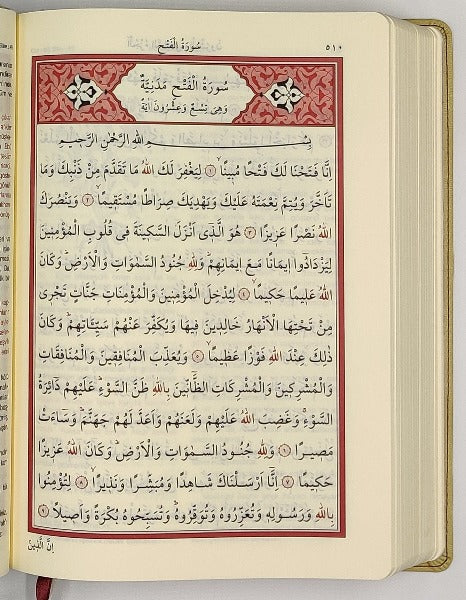 سُورَةُ الْفَتْحِ ٥١٠
سُورَةُ الْفَتْحِ مَدَنِيَّةٌ
وَهِىَ تِسْعٌ وَعِشْرُونَ اٰيَةً
بِسْمِ اللّٰهِ الرَّحْمٰنِ الرَّحِيمِ
اِنَّا فَتَحْنَا لَكَ فَتْحًا مُبِينًاۙ ﴿١﴾ لِيَغْفِرَ لَكَ اللّٰهُ مَا تَقَدَّمَ مِنْ ذَنْبِكَ وَمَا
تَاَخَّرَ وَيُتِمَّ نِعْمَتَهُ عَلَيْكَ وَيَهْدِيَكَ صِرَاطًا مُسْتَقِيمًاۙ ﴿٢﴾ وَيَنْصُرَكَ
اللّٰهُ نَصْرًا عَزِيزًا ﴿٣﴾ هُوَ الَّذٖى اَنْزَلَ السَّكِينَةَ فِى قُلُوبِ الْمُؤْمِنِينَ
لِيَزْدَادُٓوا اِيمَانًا مَعَ اِيمَانِهِمْۜ وَلِلّٰهِ جُنُودُ السَّمٰوَاتِ وَالْاَرْضِۜ وَكَانَ
اللّٰهُ عَلِيمًا حَكِيمًاۙ ﴿٤﴾ لِيُدْخِلَ الْمُؤْمِنِينَ وَالْمُؤْمِنَاتِ جَنَّاتٍ تَجْرِى
مِنْ تَحْتِهَا الْاَنْهَارُ خَالِدِينَ فِيهَا وَيُكَفِّرَ عَنْهُمْ سَيِّـَٔاتِهِمْۜ وَكَانَ
ذٰلِكَ عِنْدَ اللّٰهِ فَوْزًا عَظِيمًاۙ ﴿٥﴾ وَيُعَذِّبَ الْمُنَافِقِينَ وَالْمُنَافِقَاتِ
وَالْمُشْرِكِينَ وَالْمُشْرِكَاتِ الظَّٓانِّينَ بِاللّٰهِ ظَنَّ السَّوْءِۜ عَلَيْهِمْ دَٓائِرَةُ
السَّوْءِۚ وَغَضِبَ اللّٰهُ عَلَيْهِمْ وَلَعَنَهُمْ وَاَعَدَّ لَهُمْ جَهَنَّمَۜ وَسَٓاءَتْ
مَصِيرًا ﴿٦﴾ وَلِلّٰهِ جُنُودُ السَّمٰوَاتِ وَالْاَرْضِۜ وَكَانَ اللّٰهُ عَزِيزًا
حَكِيمًا ﴿٧﴾ اِنَّٓا اَرْسَلْنَاكَ شَاهِدًا وَمُبَشِّرًا وَنَذِيرًاۙ ﴿٨﴾ لِتُؤْمِنُوا
بِاللّٰهِ وَرَسُولِهِ وَتُعَزِّرُوهُ وَتُوَقِّرُوهُۜ وَتُسَبِّحُوهُ بُكْرَةً وَاَصِيلًا ﴿٩﴾
اِنَّ الَّذِينَ